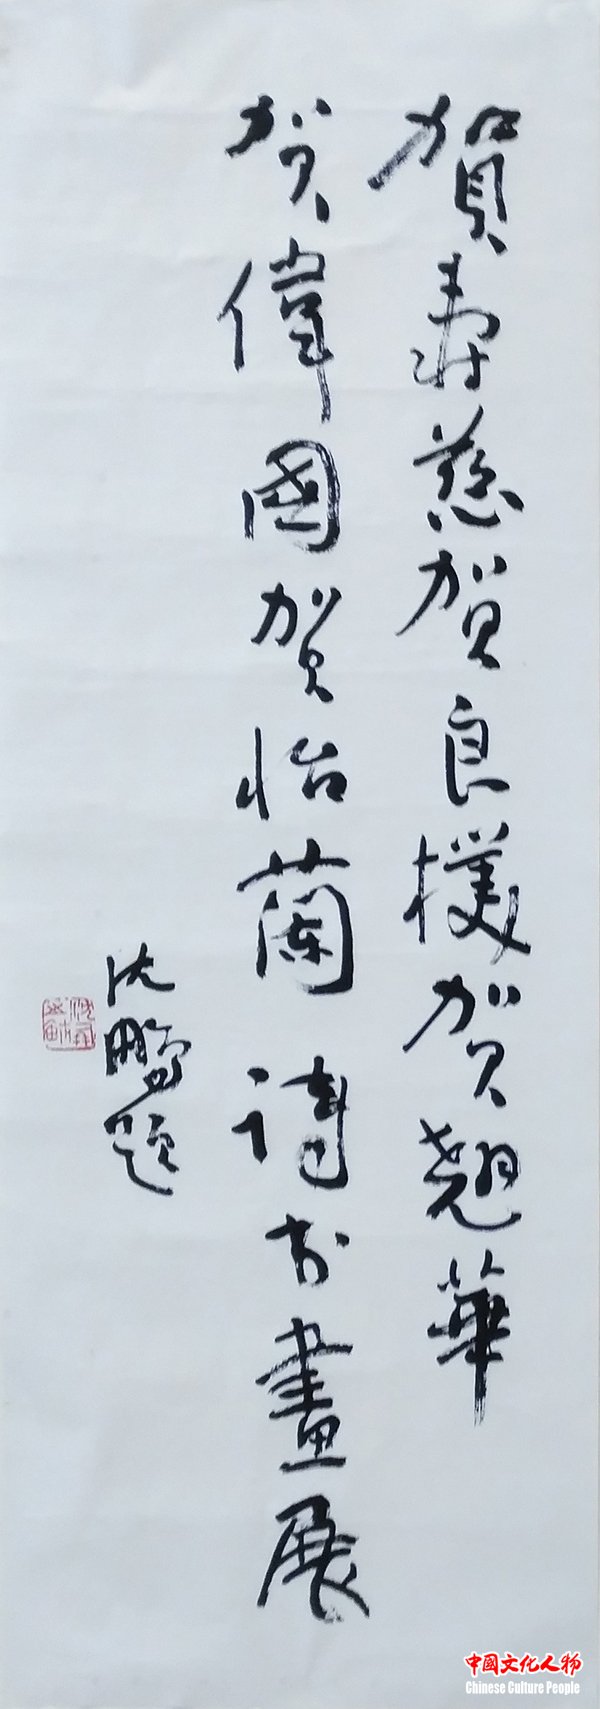 賀寿慈贺良樸贺翘華
贺偉國贺怡蘭 詩书畫展
沈鵬题
中國文化人物
Chinese Culture People